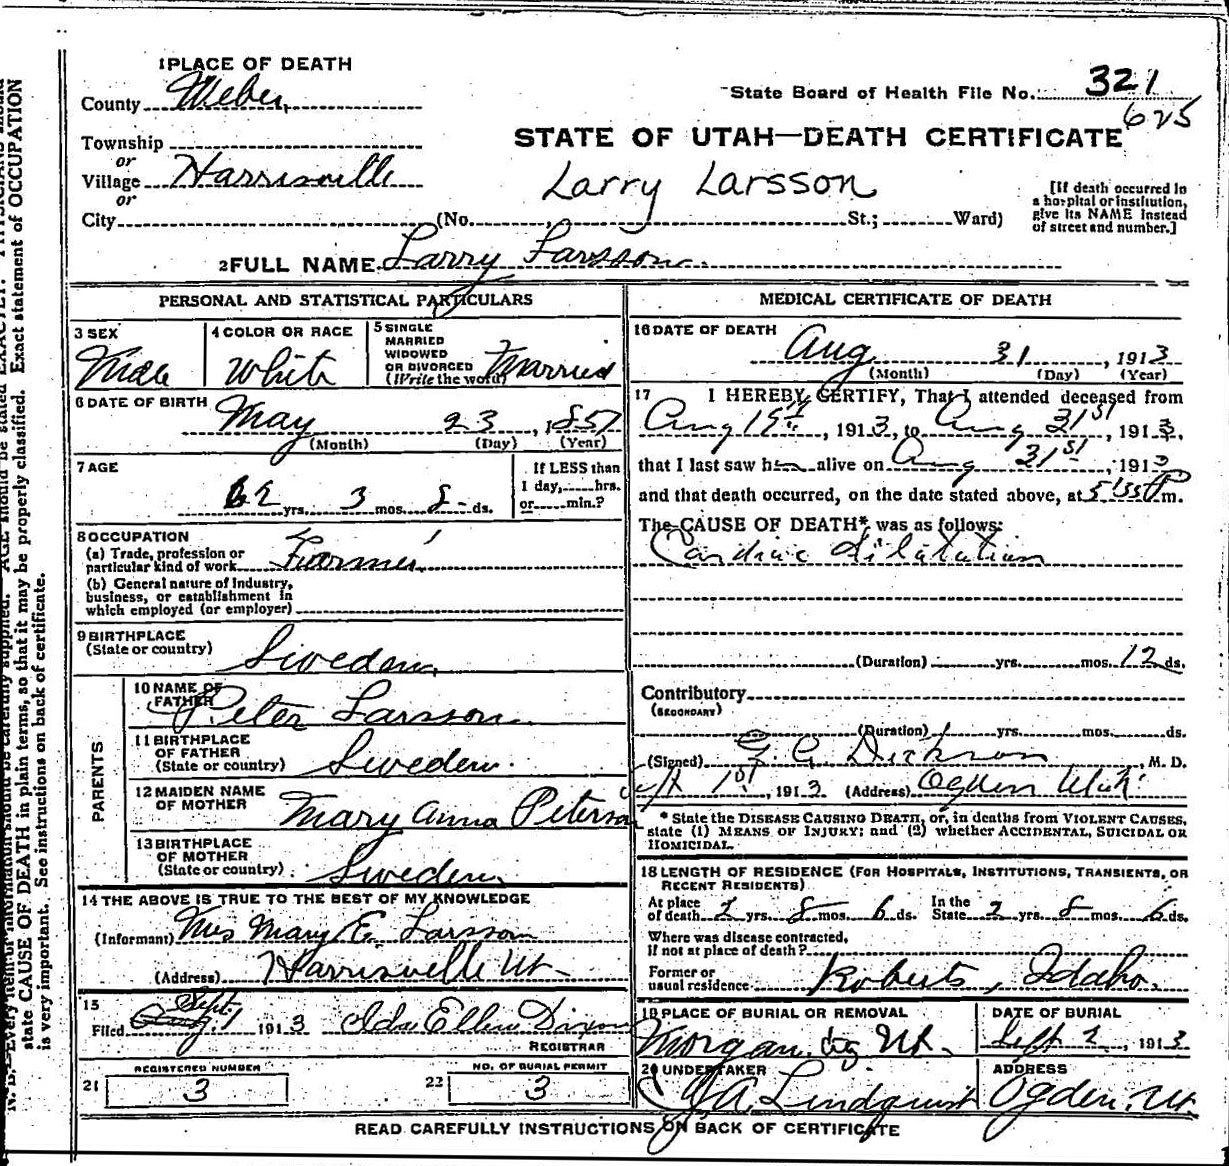 1 PLACE OF DEATH
County Weber
State Board of Health File No. 321
625
Township
or
Village Harrisville
or
City
STATE OF UTAH—DEATH CERTIFICATE
Larry Larsson
(No. St.; Ward)
[If death occurred in
a hospital or institution,
give its NAME instead
of street and number.]
2 FULL NAME Larry Larsson
PERSONAL AND STATISTICAL PARTICULARS
3 SEX
Male
4 COLOR OR RACE
White
5 SINGLE
MARRIED
WIDOWED
OR DIVORCED
(Write the word)
Married
6 DATE OF BIRTH
May 23, 1851
(Month) (Day) (Year)
7 AGE
62 yrs. 3 mos. 8 ds.
If LESS than
1 day, hrs.
or min.?
8 OCCUPATION
(a) Trade, profession or
particular kind of work Farmer
(b) General nature of Industry,
business, or establishment in
which employed (or employer)
9 BIRTHPLACE
(State or country)
Sweden
PARENTS
10 NAME OF
FATHER
Peter Larsson
11 BIRTHPLACE
OF FATHER
(State or country)
Sweden
12 MAIDEN NAME
OF MOTHER
Mary Anna Peterson
13 BIRTHPLACE
OF MOTHER
(State or country)
Sweden
14 THE ABOVE IS TRUE TO THE BEST OF MY KNOWLEDGE
(Informant) Mrs Mary E. Larsson
(Address) Harrisville Ut
15
Filed Sept. 1 1913 Ida Ellen Dixon
REGISTRAR
REGISTERED NUMBER
21 3
NO. OF BURIAL PERMIT
22 3
MEDICAL CERTIFICATE OF DEATH
16 DATE OF DEATH
Aug 31, 1913
(Month) (Day) (Year)
17 I HEREBY CERTIFY, That I attended deceased from
Aug 19th, 1913, to Aug 31st, 1913,
that I last saw him alive on Aug 31st, 1913
and that death occurred, on the date stated above, at m.
The CAUSE OF DEATH* was as follows:
Cardiac dilatation
(Duration) yrs. mos. 12 ds.
Contributory
(SECONDARY)
(Duration) yrs. mos. ds.
(Signed) Dickson, M. D.
Sept 1st, 1913 (Address) Ogden Utah
* State the DISEASE CAUSING DEATH, or, in deaths from VIOLENT CAUSES,
state (1) MEANS OF INJURY; and (2) whether ACCIDENTAL, SUICIDAL OR
HOMICIDAL.
18 LENGTH OF RESIDENCE (FOR HOSPITALS, INSTITUTIONS, TRANSIENTS, OR
RECENT RESIDENTS)
At place
of death 2 yrs. 8 mos. 6 ds.
In the
State 2 yrs. 8 mos. 6 ds.
Where was disease contracted,
if not at place of death?
Former or
usual residence Roberts, Idaho.
19 PLACE OF BURIAL OR REMOVAL
Morgan City Ut.
DATE OF BURIAL
Sept 2, 1913
20 UNDERTAKER
Lindquist
ADDRESS
Ogden, Ut
READ CAREFULLY INSTRUCTIONS ON BACK OF CERTIFICATE
state CAUSE OF DEATH in plain terms, so that it may be properly classified. Exact statement of OCCUPATION
is very important. See instructions on back of certificate.